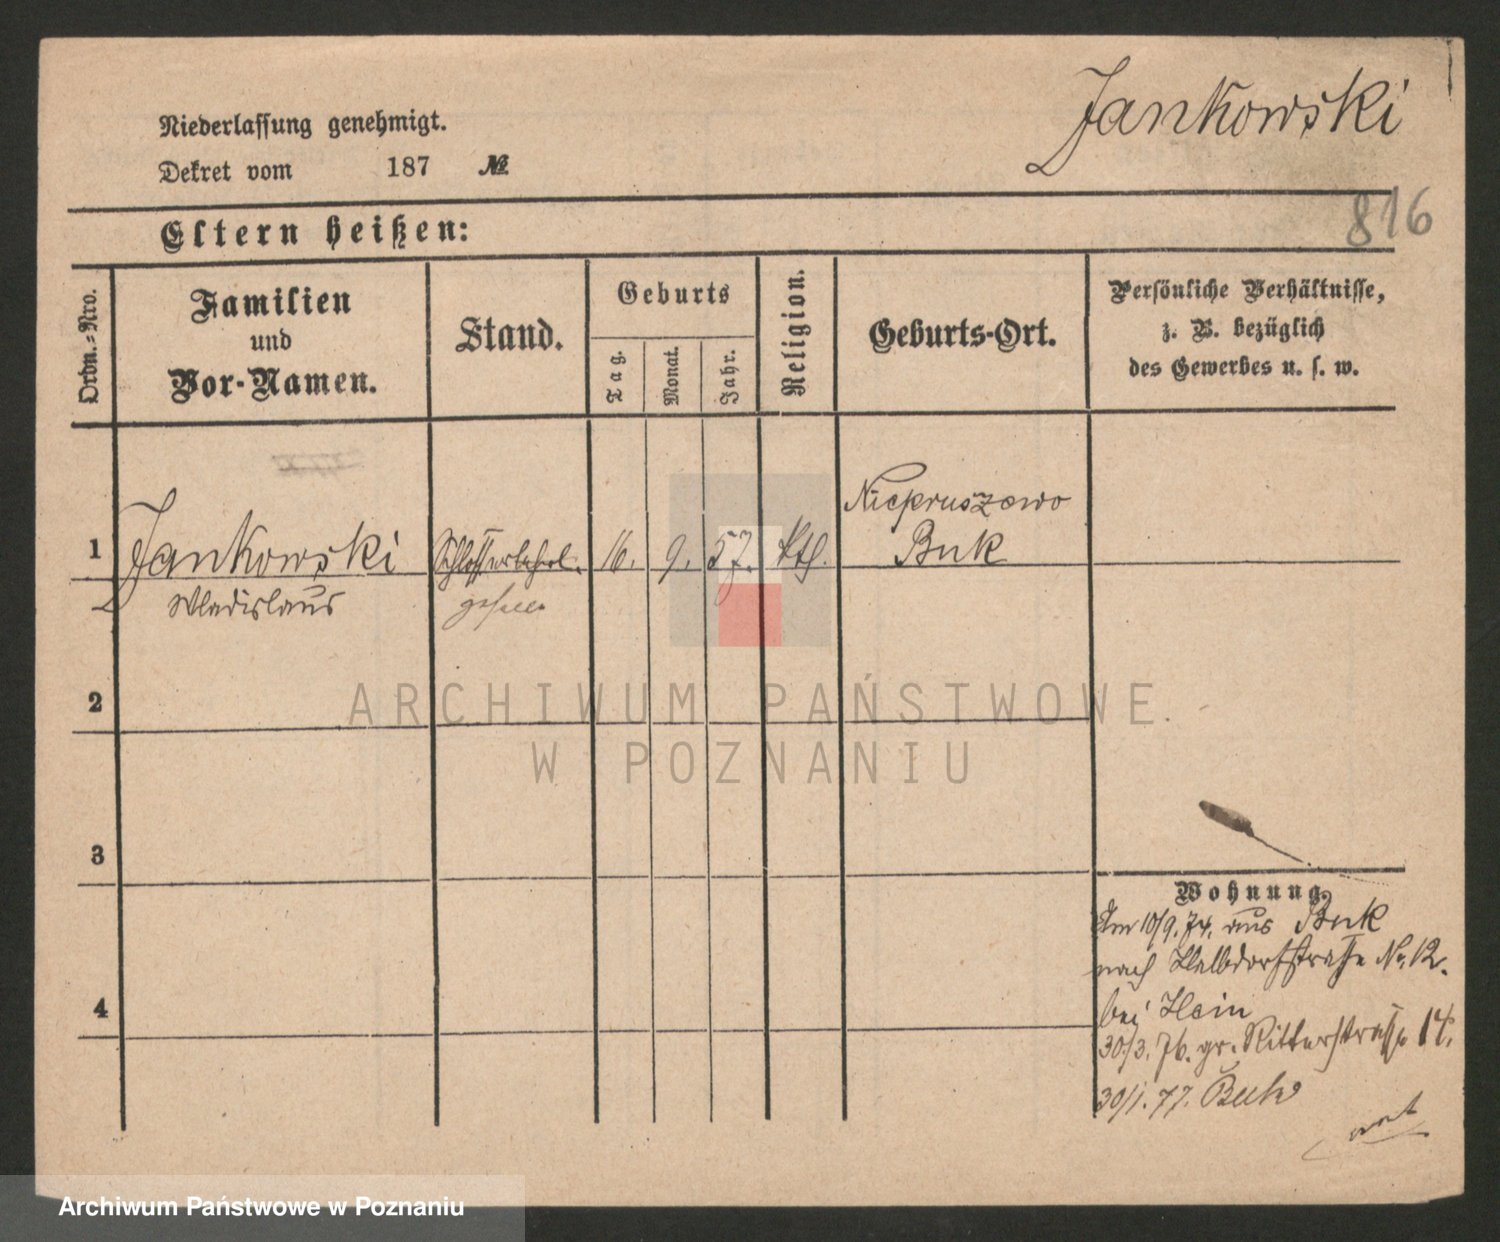 Jankowski
Niederlassung genehmigt.
Dekret vom 187 №
816
Eltern heißen:
Ordn.-Nro.
Familien und Vor-Namen.
Stand.
Geburts
Tag.
Monat.
Jahr.
Religion.
Geburts-Ort.
Persönliche Verhältnisse,
z. B. bezüglich
des Gewerbes u. s. w.
Niepruszewo
1 Jankowski Schlosserlehrl. 16. 9. 57. Kth. Buk
Wladislaus
2
3
4
Wohnung
Am 10/9. 74. aus Buk
nach Halbdorfstraße No. 12.
bei Hein
30/3. 76. gr. Ritterstraße 14.
30/1. 77. Buk
ARCHIWUM PAŃSTWOWE
W POZNANIU
Archiwum Państwowe w Poznaniu